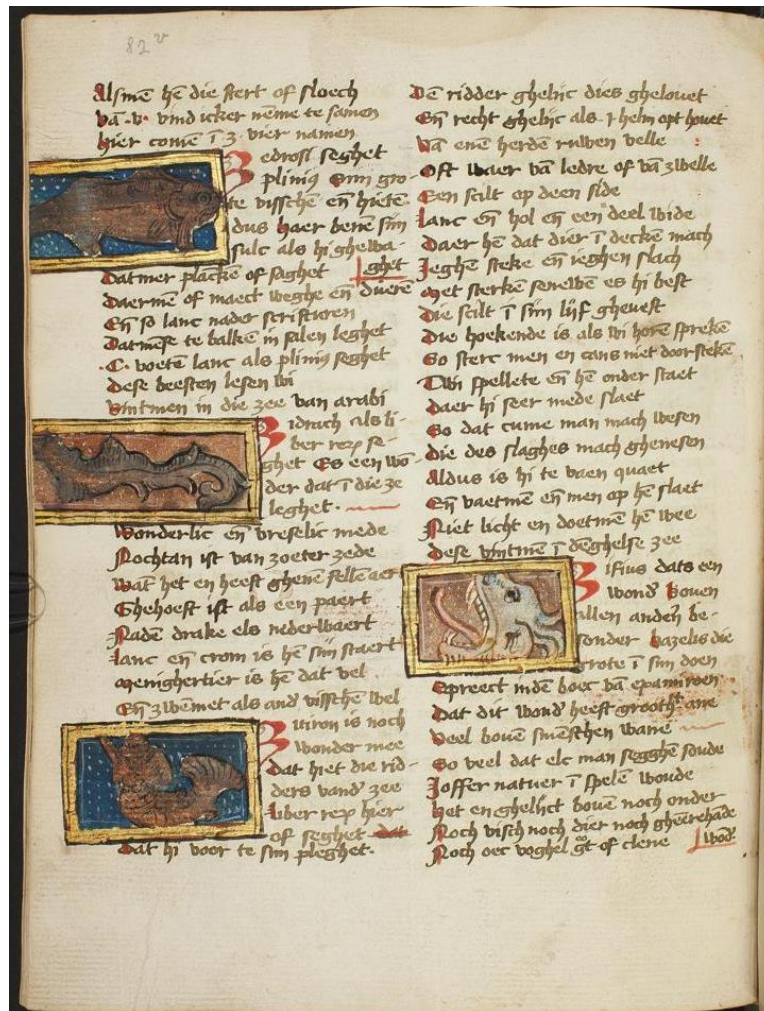 82v
Alsmē hē die stert of sloech
Vā .v. vind icker nēme te samen
Hier comē ī z. vier namen
Bedrosi seghet
plinius Siin gro-
te visschē eñ hietē
dus haer benē siin
sulc als hi ghewa-
Datmer plāckē of saghet ghet
Daermē of maect weghe eñ duerē
Eñ so lanc nader scrifturen
Datmēse te balkē in salen leghet
.C. voetē lanc als plinius seghet
Dese beesten lesen wi
Vintmen in die zee van arabi
Bidrach als li-
ber rerum se-
ghet Es een wō-
der dat ī die ze
leghet.
Wonderlic eñ vreselic mede
Nochtan ist van zoeter zede
Wāt het en heeft ghenē fellē aer
Ghehoeft ist als een paert
Nadē drake els nederwaert
Lanc eñ crom is hē siin staert
Menighertier is hē dat vel
Eñ zwēmet als and' visschē wel
Butiron is noch
wonder mee
Dat hiet die rid-
ders vand' zee
Liber rerum hier
of seghet dat
Dat hi voor te siin pleghet.
Dē ridder ghelijc dies ghelovet
Eñ recht ghelijc als .1. helm opt hovet
Vā enē herdē ruwen velle
Oft waer vā ledre of vā zwelle
Een scilt op deen side
Lanc eñ hol eñ een deel wide
Daer hē dat dier ī deckē mach
Jeghē steke eñ ieghen slach
Met sterkē senewē es hi best
Die scilt ī siin lijf ghevest
Die hoekende is als wi horē sprekē
So sterc men en cans niet doorstekē
Twi spellete eñ hē onder staet
Daer hi seer mede slaet
So dat cume man mach wesen
Die des slaghes mach ghenesen
Aldus is hi te vaen quaet
Eñ vaetmē eñ men op hē slaet
Niet licht en doetmē hē wee
Dese vintmē ī dēghelse zee
Bifius dats een
wond' boven
allen anderē be-
sonder bazelis die
grote ī siin doen
Spreect indē boec vā epamiroen
Dat dit wond' heeft grooth' ane
Veel bovē smēschen wane
So veel dat elc man segghē soude
Joffer natuer ī spelē woude
Het en ghelijct bovē noch onder
Noch visch noch dier noch gheērehāde
Noch oec voghel gt of clene wōd'